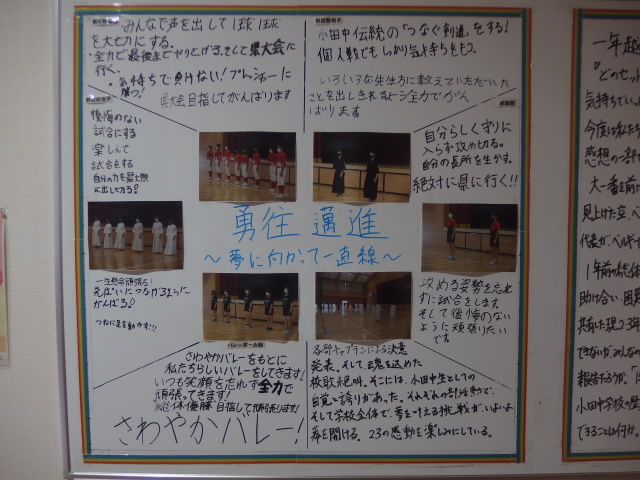 みんなで声を出して1球1球
を大切にする。
・全力で最後までやりとげる。そして県大会に
行く。
・気持ちで負けない!プレッシャーに
勝つ!
県大会目指してがんばります
小田中伝統の「つなぐ剣道」をする!
個人戦でもしっかり気持ちをもつ。
いろいろな先生方に教えていただいた
ことを出しきれるよう全力でがん
ばります
後悔のない
試合にする
楽しんで
試合をする
自分の力を最大限
に出し切る!
自分らしく守りに
入らず攻め切る。
自分の長所を生かす。
絶対に県に行く!!
勇往邁進
~夢に向かって一直線~
一生懸命頑張る!
がんばる!
つねに足を動かす!!!
攻める姿勢を忘れ
ずに試合をします。
そして後悔のない
ように頑張りたい
です
バレーボール部
さわやかバレーをもとに
私たちらしいバレーをしてきます!
いつも笑顔を忘れず全力で
頑張ってきます!
総体優勝目指して頑張ります!
さわやかバレー!
各部キャプテンによる決意
発表、そして魂を込めた
校歌絶叫。そこには、小田中生としての
自覚と誇りがあった。それぞれの部活動で、
そして学校全体で、夢を叶える挑戦がいよいよ
幕を開ける。23の感動を楽しみにしている。
一年越
『どのセット
気持ちでい
今度は私たち
感想の一部
大一番を前
見上げた空、ベ
代表が、ベルギ
1年前の総体
助け合い、困難
共有し現2・3年
できないが、みん
報告そうが。
小田中学校の歴
できることは何か。